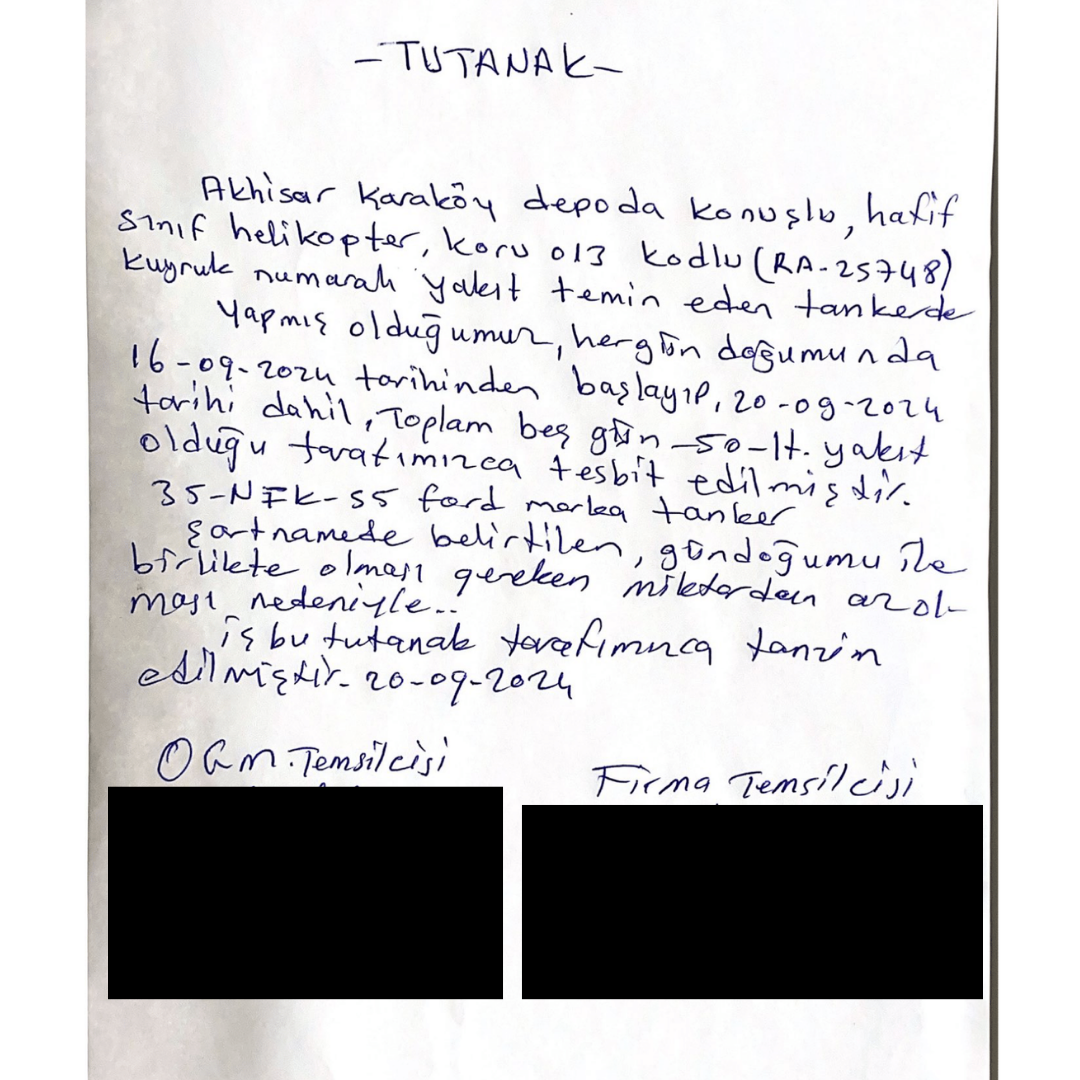 -TUTANAK-
Akhisar Karaköy depoda konuşlu, hafif
sınıf helikopter, koru 013 kodlu (RA-25748)
kuyruk numaralı yakıt temin eden tankerde
yapmış olduğumuz, hergün doğumunda
16-09-2024 tarihinden başlayıp, 20-09-2024
tarihi dahil, Toplam beş gün -50-lt. yakıt
olduğu tarafımızca tesbit edilmiştir.
35-NFK-55 ford marka tanker
şartnamede belirtilen, gündoğumu ile
birlikte olması gereken miktardan az ol-
ması nedeniyle..
iş bu tutanak tarafımızca tanzim
edilmiştir. 20-09-2024
OGM. Temsilcisi
Firma Temsilcisi